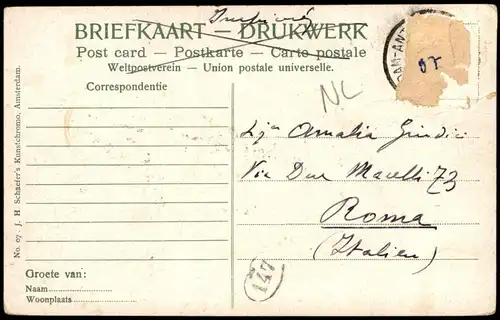 BRIEFKAART — DRUKWERK
Post card — Postkarte — Carte postale
Weltpostverein — Union postale universelle.
Correspondentie
DAM-ANT
07
NL
Amalia Giudici
Via Due Macelli 73
Roma
(Italien)
147
Groete van:
Naam
Woonplaats
No. 07 - J. H. Schaefer's Kunstchromo, Amsterdam.